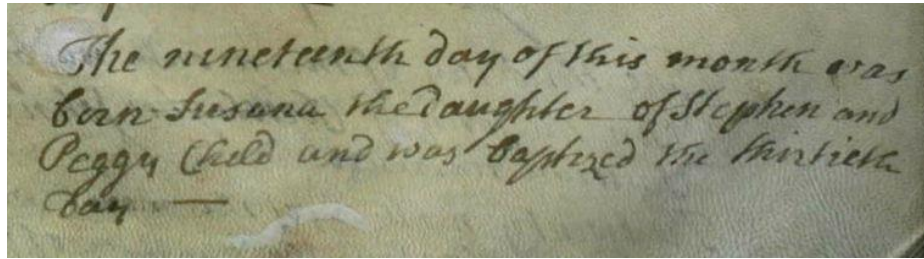 The nineteenth day of this month was
born Susana the daughter of Stephen and
Peggy Cheld and was baptized the thirtieth
day —